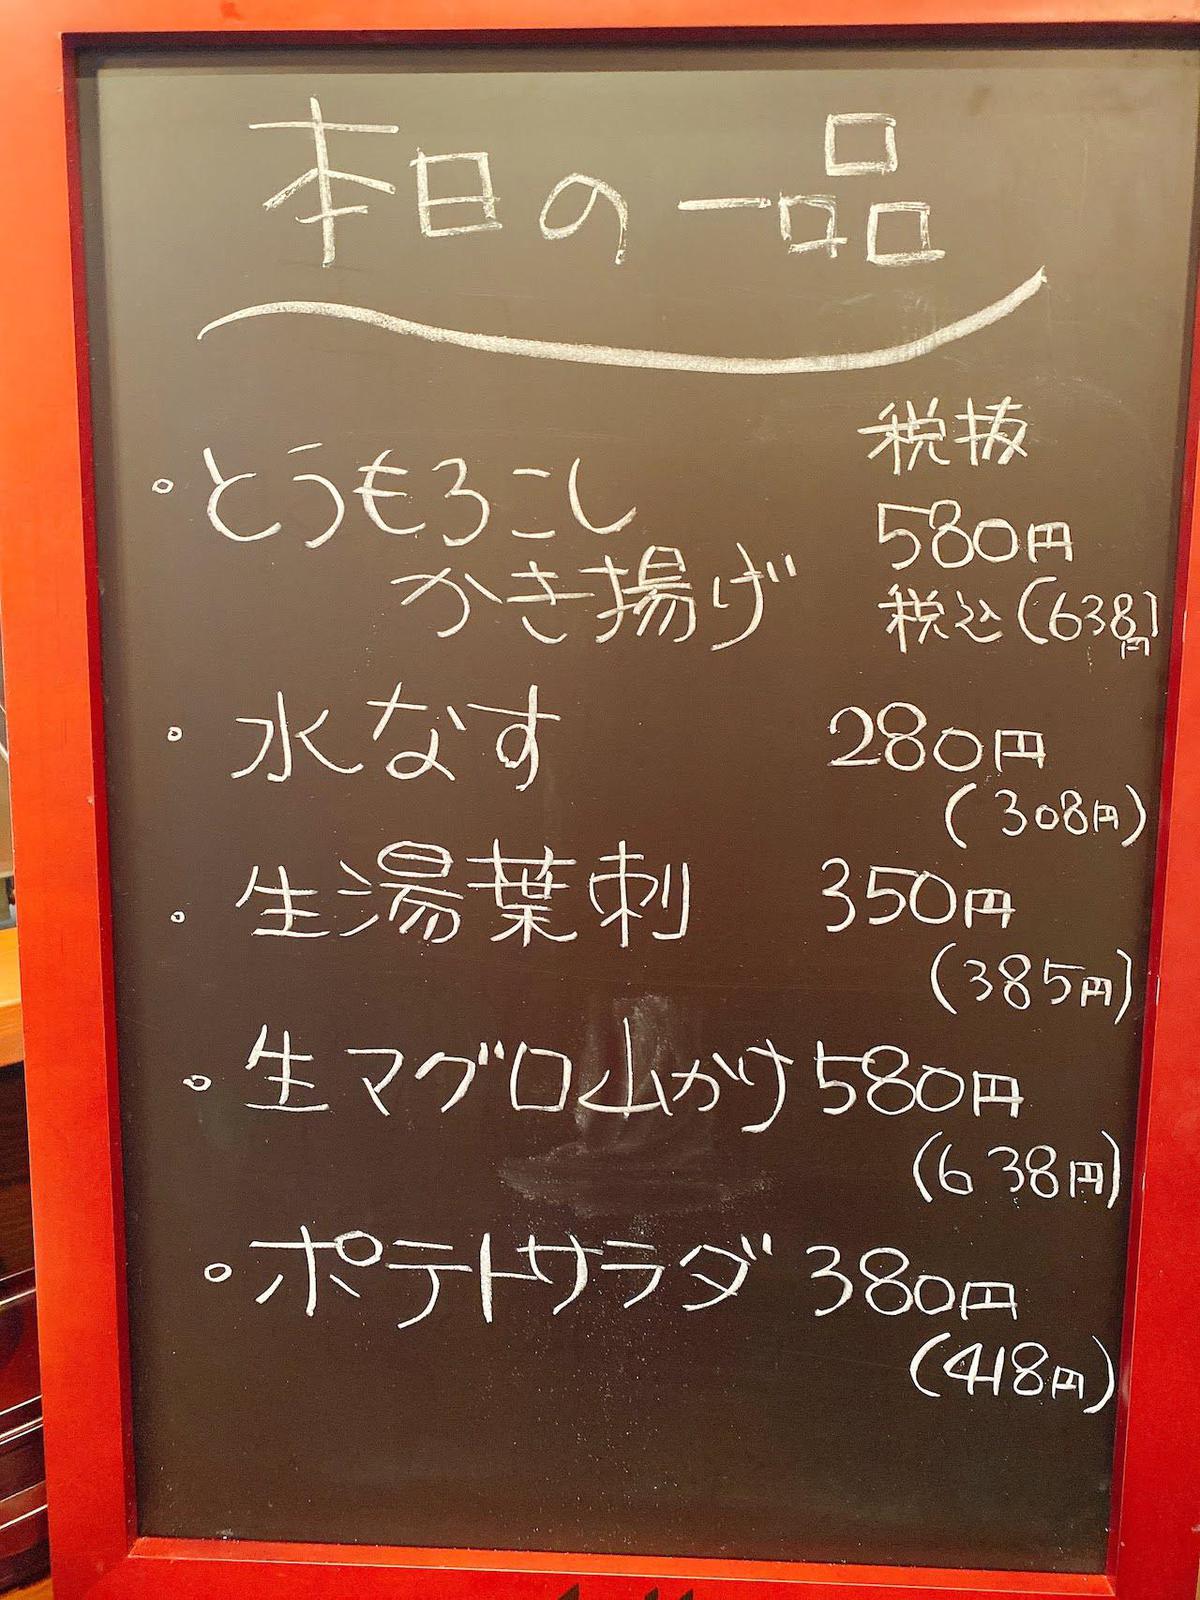 本日の一品
税抜
・とうもろこし
580円
かき揚げ
税込(638円)
・水なす 280円
(308円)
・生湯葉刺 350円
(385円)
・生マグロ山かけ 580円
(638円)
・ポテトサラダ 380円
(418円)